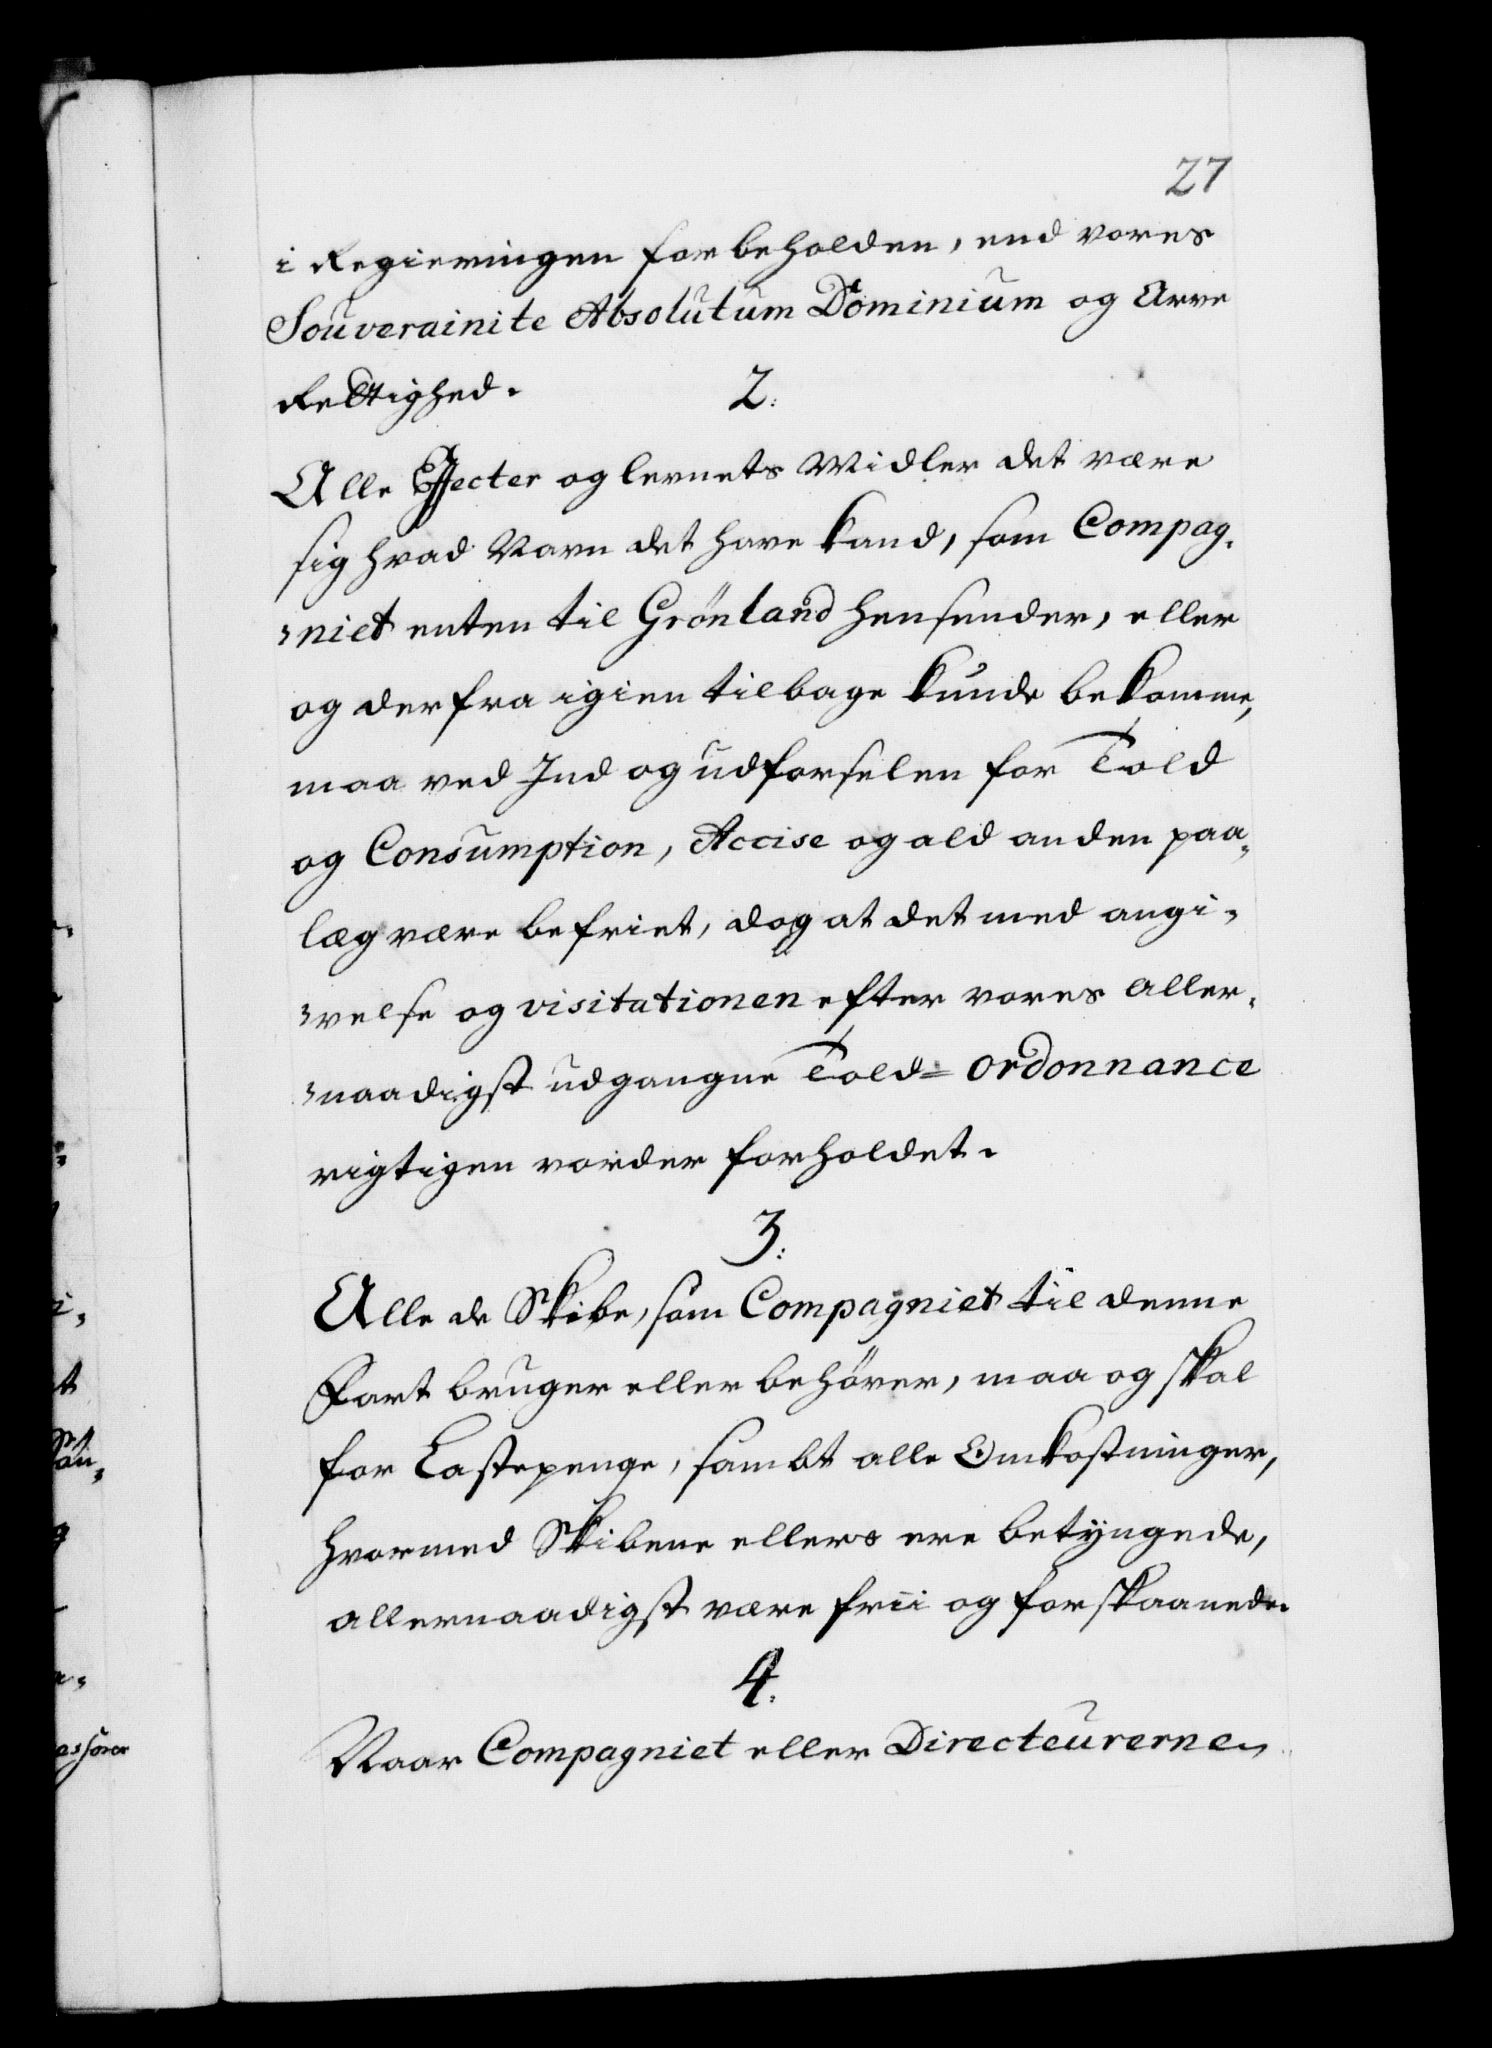 27
i Regieringen forbeholden, end vores
Souverainite Absolutum Dominium og Arve
Rettighed.
2.
Alle Effecter og levnets Midler det være
sig hvad Navn det have kand, som Compag,
niet enten til Grönland hensender, eller
og derfra igien tilbage kunde bekomme,
maa ved Ind og udførselen for Told
og Consumption, Accise og ald anden paa,
læg være befriet, dog at det med angi,
velse og visitationen efter vores aller,
naadigst udgangne Told= ordonnance
rigtigen vorder forholdet.
3.
Alle de Skibe, som Compagniet til denne
Fart bruger eller behöver, maa og skal
for Lastepenge, sambt alle Omkostninger,
hvormed Skibene ellers ere betÿngede,
allernaadigst være frii og forskaanede.
4.
Naar Compagniet eller Directeurerne